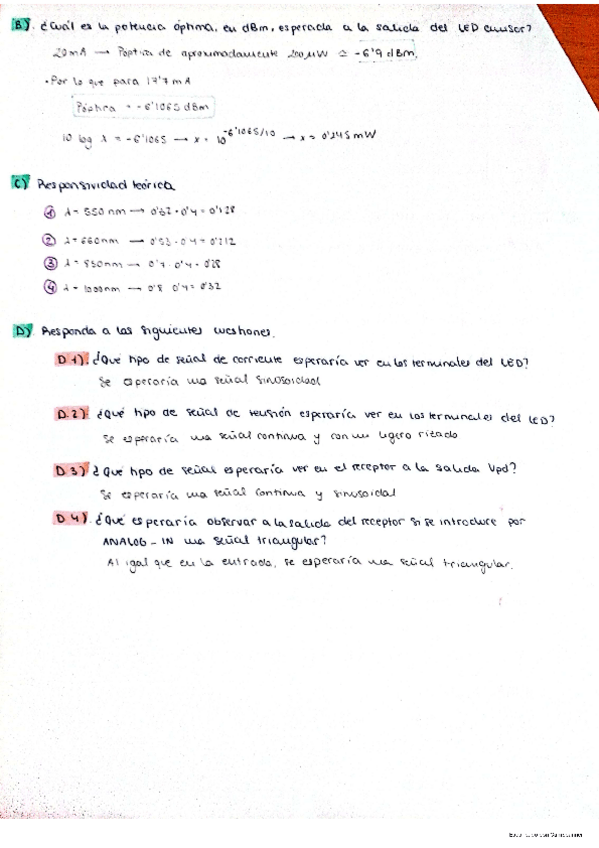 B) ¿Cuál es la potencia óptima, en dBm, esperada a la salida del LED emisor?
20mA → Póptica de aproximadamente 200µW ≃ -6'9 dBm,
• Por lo que para 17'7 mA
Póptica = -6'1065 dBm
10 log x = -6'1065 → x = 10^-6'1065/10 → x = 0'245 mW
C) Responsividad teórica
① λ = 550 nm → 0'32 · 0'4 = 0'128
② λ = 660nm → 0'53 · 0'4 = 0'212
③ λ = 850nm → 0'7 · 0'4 = 0'28
④ λ = 1000nm → 0'8 0'4 = 0'32
D) Responda a las siguientes cuestiones.
D.1). ¿Qué tipo de señal de corriente esperaría ver en los terminales del LED?
Se esperaría una señal sinusoidal
D.2) ¿Qué tipo de señal de tensión esperaría ver en los terminales del LED?
Se esperaría una señal continua y con un ligero rizado
D.3) ¿Que tipo de señal esperaría ver en el receptor a la salida Vpd?
Se esperaría una señal continua y sinusoidal
D.4). ¿Qué esperaría observar a la salida del receptor si se introduce por
ANALOG-IN una señal triangular?
Al igal que en la entrada, se esperaría una señal triangular.